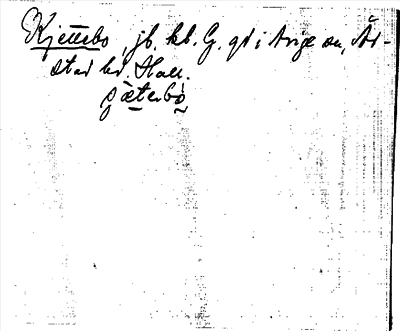 Kjettebo, jb. kb. G. gd i Arige sn, År-
stad hd. Hall.
pætæbo